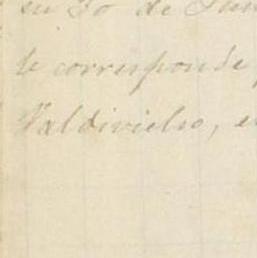 su 30 de Jun
le corresponde
Valdivielso, e